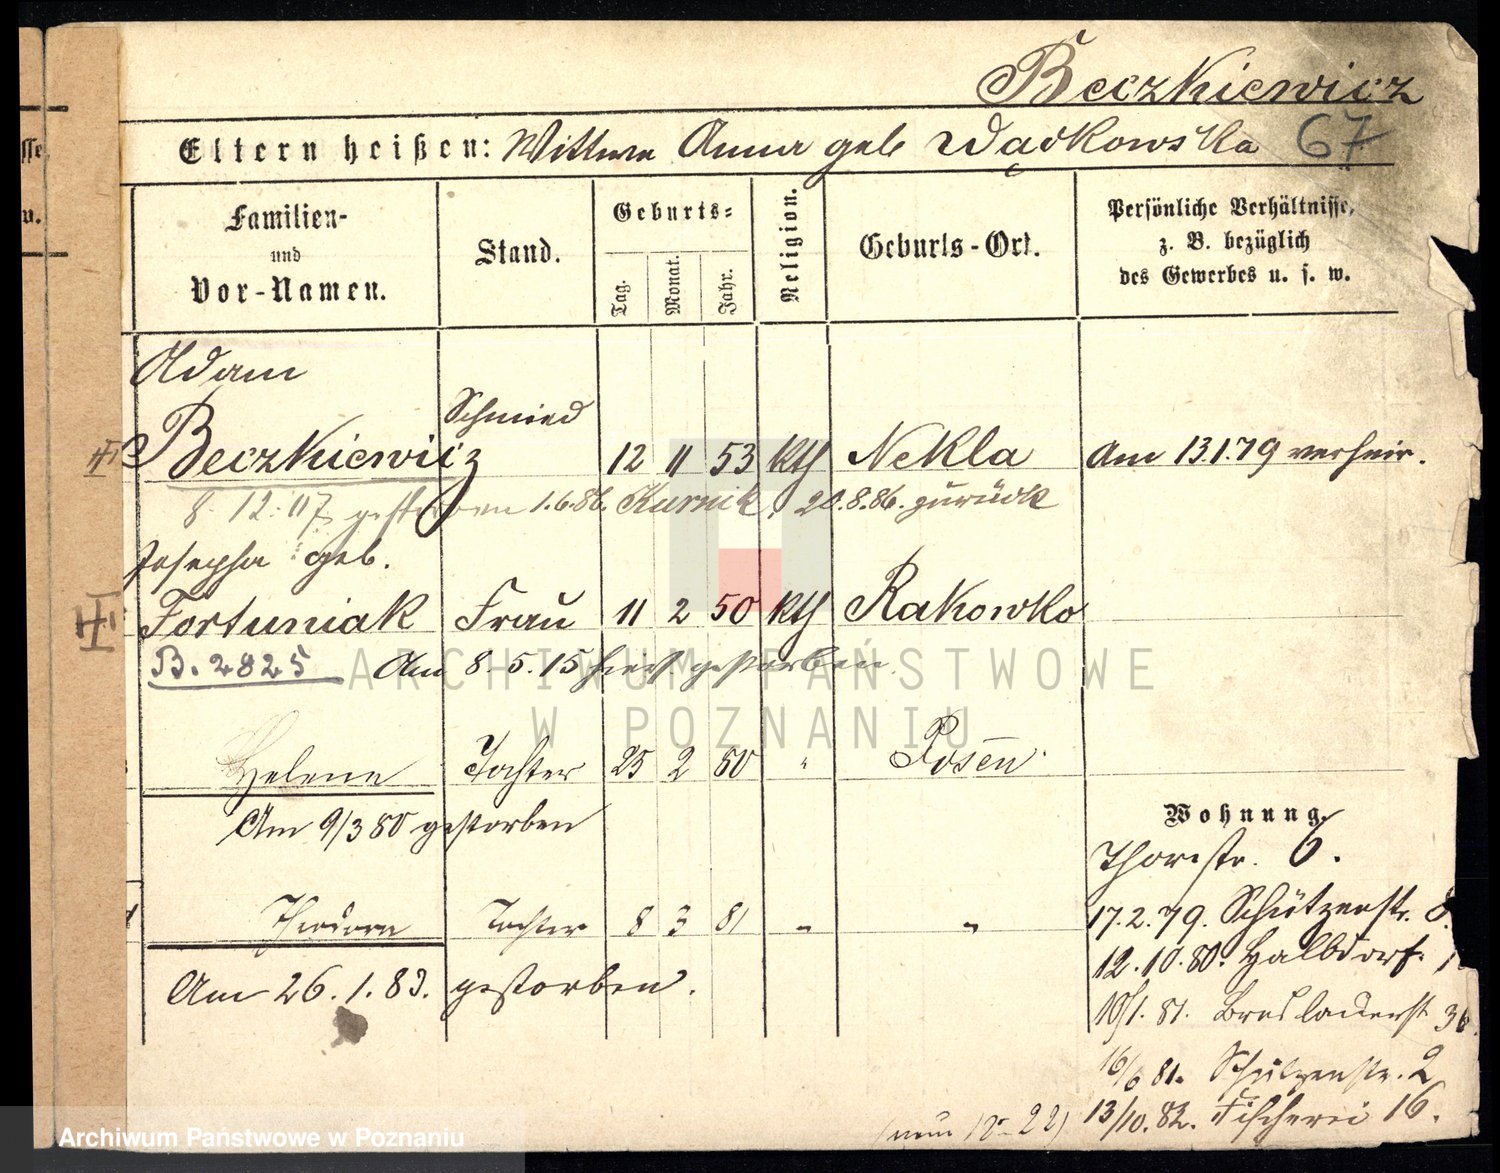 Beczkiewicz
Eltern heißen: Wittwe Anna geb Wądkowska 67
Familien- und Vor-Namen.
Stand.
Geburts-
Tag.
Monat.
Jahr.
Religion.
Geburts-Ort.
Persönliche Verhältnisse, z. B. bezüglich des Gewerbes u. s. w.
Adam
Beczkiewicz Schmied 12 11 53 kth Nekla Am 13.1.79 verheir.
8. 12. 07 gestorben 1.6.86. Kurnik, 20.8.86. zurück
Josepha geb.
Fortuniak Frau 11 2 50 kth Rakowko
B. 2825 Am 8. 5. 15 hier gestorben.
Helene Tochter 25 2 80 " Posen
Am 9/3 80 gestorben
Wohnung.
Thorstr. 6.
Theodora Tochter 8 3 81 " "
17.2.79. Schützenstr.
Am 26.1.83. gestorben.
12.10.80. Halbdorf.
10/1. 81. Breslauerst
16/6 81. Schützenstr. 2
13/10. 82. Fischerei 16.
ARCHIWUM PAŃSTWOWE
W POZNANIU
Archiwum Państwowe w Poznaniu